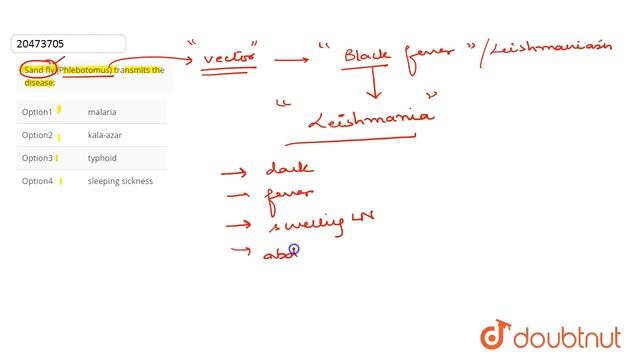 20473705
Sand fly (Phlebotomus) transmits the
disease:
Option1 malaria
Option2 kala-azar
Option3 typhoid
Option4 sleeping sickness
"vector" → "Black fever" / Leishmaniasis
"Leishmania"
→ dark
→ fever
→ swelling LN
→ abd
doubtnut